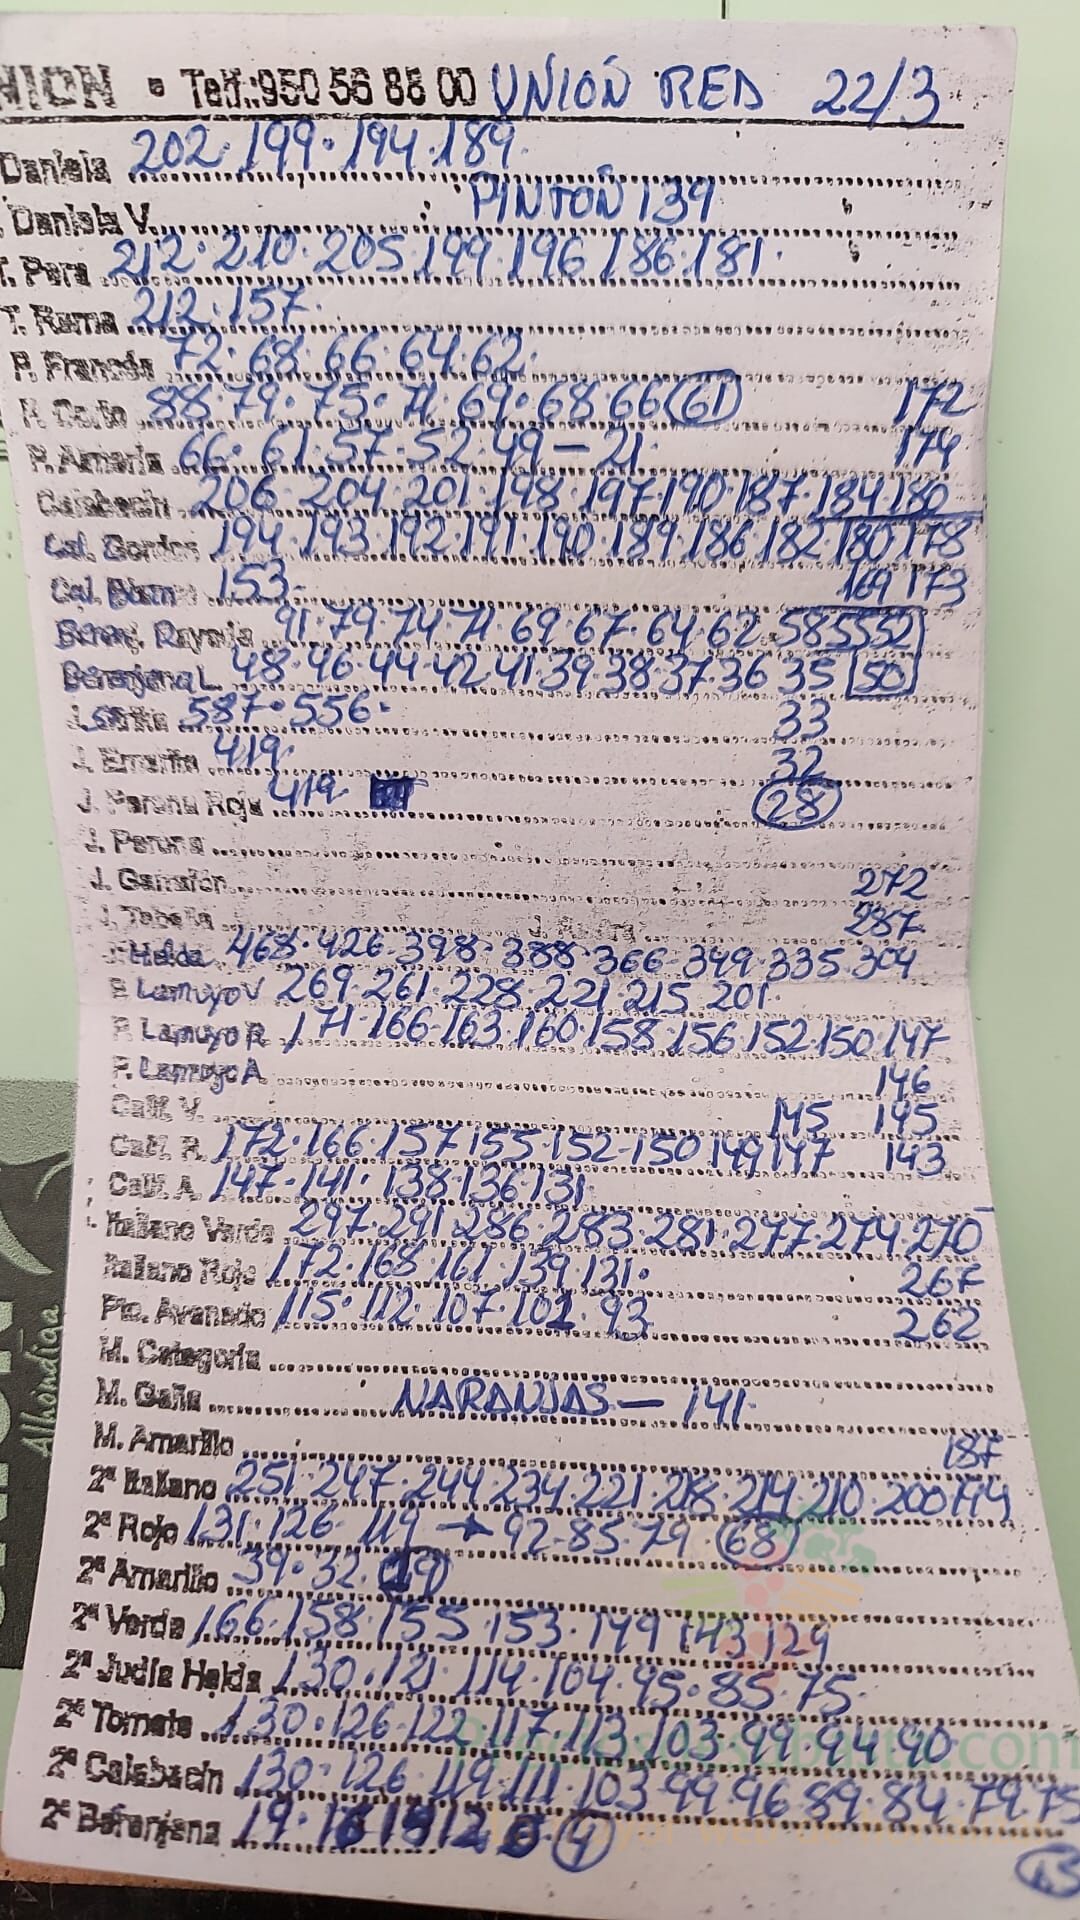 NION • Telf.:950 56 88 00 UNION RED 22/3
Daniela 202·199·194·189·
Daniela V. PINTON 139
T. Pera 212·210·205·199·196·186·181·
T. Rama 212·157·
P. Francés 72·68·66·64·62·
P. Corto 88·79·75·71·69·68·66(61) 172
P. Almería 66·61·57·52·49–21· 174
Calabacín 206·204·201·198·197·190·187·184·180
Cal. Gordos 194·193·192·191·190·189·186·182·180·178
Cal. Blanco 153· 169 173
Bereng. Rayada 91·79·74·71·69·67·64·62·58 55 52
Berenjena L. 48·46·44·42·41·39·38·37·36 35 50
J. Strike 587·556· 33
J. Emerite 419· 32
J. Perona Roja 419· 28
J. Perona
J. Garrafón 272
J. Tabella 287
J. Helda 468·426·398·388·366·349·335·304
P. Lamuyo V 269·261·228·221·215·201·
P. Lamuyo R. 171·166·163·160·158·156·152·150·147
P. Lamuyo A. 146
Calif. V. 145 145
Calif. R. 172·166·157·155·152·150 149 147 143
Calif. A. 147·141·138·136·131
Italiano Verde 297·291·286·283·281·277·274·270
Italiano Rojo 172·168·161·139·131· 267
Pto. Asurcado 115·112·107·102·93 262
M. Categoría
M. Galia NARANJAS – 141·
M. Amarillo 187
2ª Italiano 251·247·244·234·221·218·214·210·200 194
2ª Rojo 131·126·119 → 92·85·79·(68)
2ª Amarillo 39·32·(19)
2ª Verde 166·158·155·153·149 143 129
2ª Judía Helda 130·121·114·104·95·85·75
2ª Tomate 130·126·122·117·113·103·99·94·90
2ª Calabacín 130·126·119·111·103·99·96·89·84·79·75
2ª Berenjena 19·16 12 (4)
63
Alhóndiga